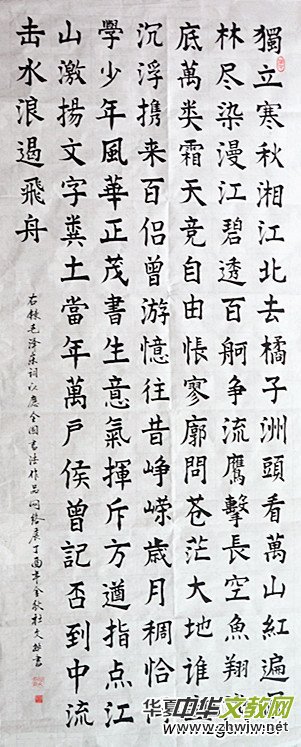 獨立寒秋湘江北去橘子洲頭看萬山紅遍
林尽染漫江碧透百舸争流鷹擊長空魚翔
底萬类霜天竞自由悵寥廓問苍茫大地谁
沉浮携来百侣曾游憶往昔峥嵘歲月稠恰
學少年風華正茂書生意氣揮斥方遒指点江
山激揚文字糞土當年萬戶侯曾記否到中流
击水浪遏飛舟
右録毛泽东词以應全国書法作品网络展丁酉年金秋杜文書
华夏中华文教网
www.zhwjw.net